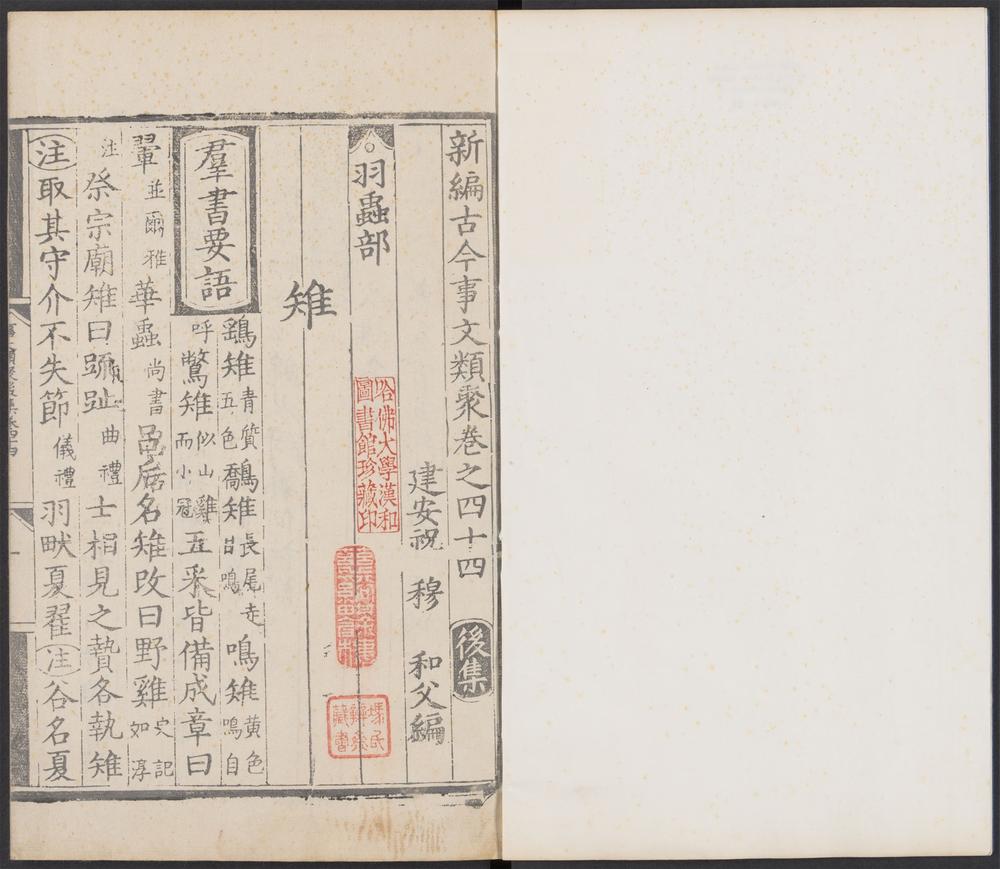 新編古今事文類聚卷之四十四 後集
建安祝 穆 和父編
羽蟲部
哈佛大學漢和
圖書館珍藏印
雉
羣書要語
鷂雉青質五色鷮雉長尾走且鳴鳴雉黃色鳴自
呼鷩雉似山雞而小冠五采皆備成章曰
翬並爾雅華蟲尚書呂后名雉改曰野雞史記如淳
注祭宗廟雉曰踈趾曲禮士相見之贄各執雉
注取其守介不失節儀禮羽畎夏翟注谷名夏